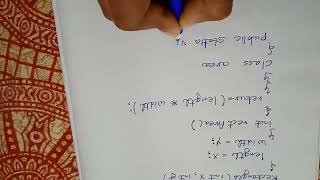 Rectangle (int x, int y)
length = x;
width = y;
int rectArea()
{
return (length * width);
}
}
class area
{
public static v